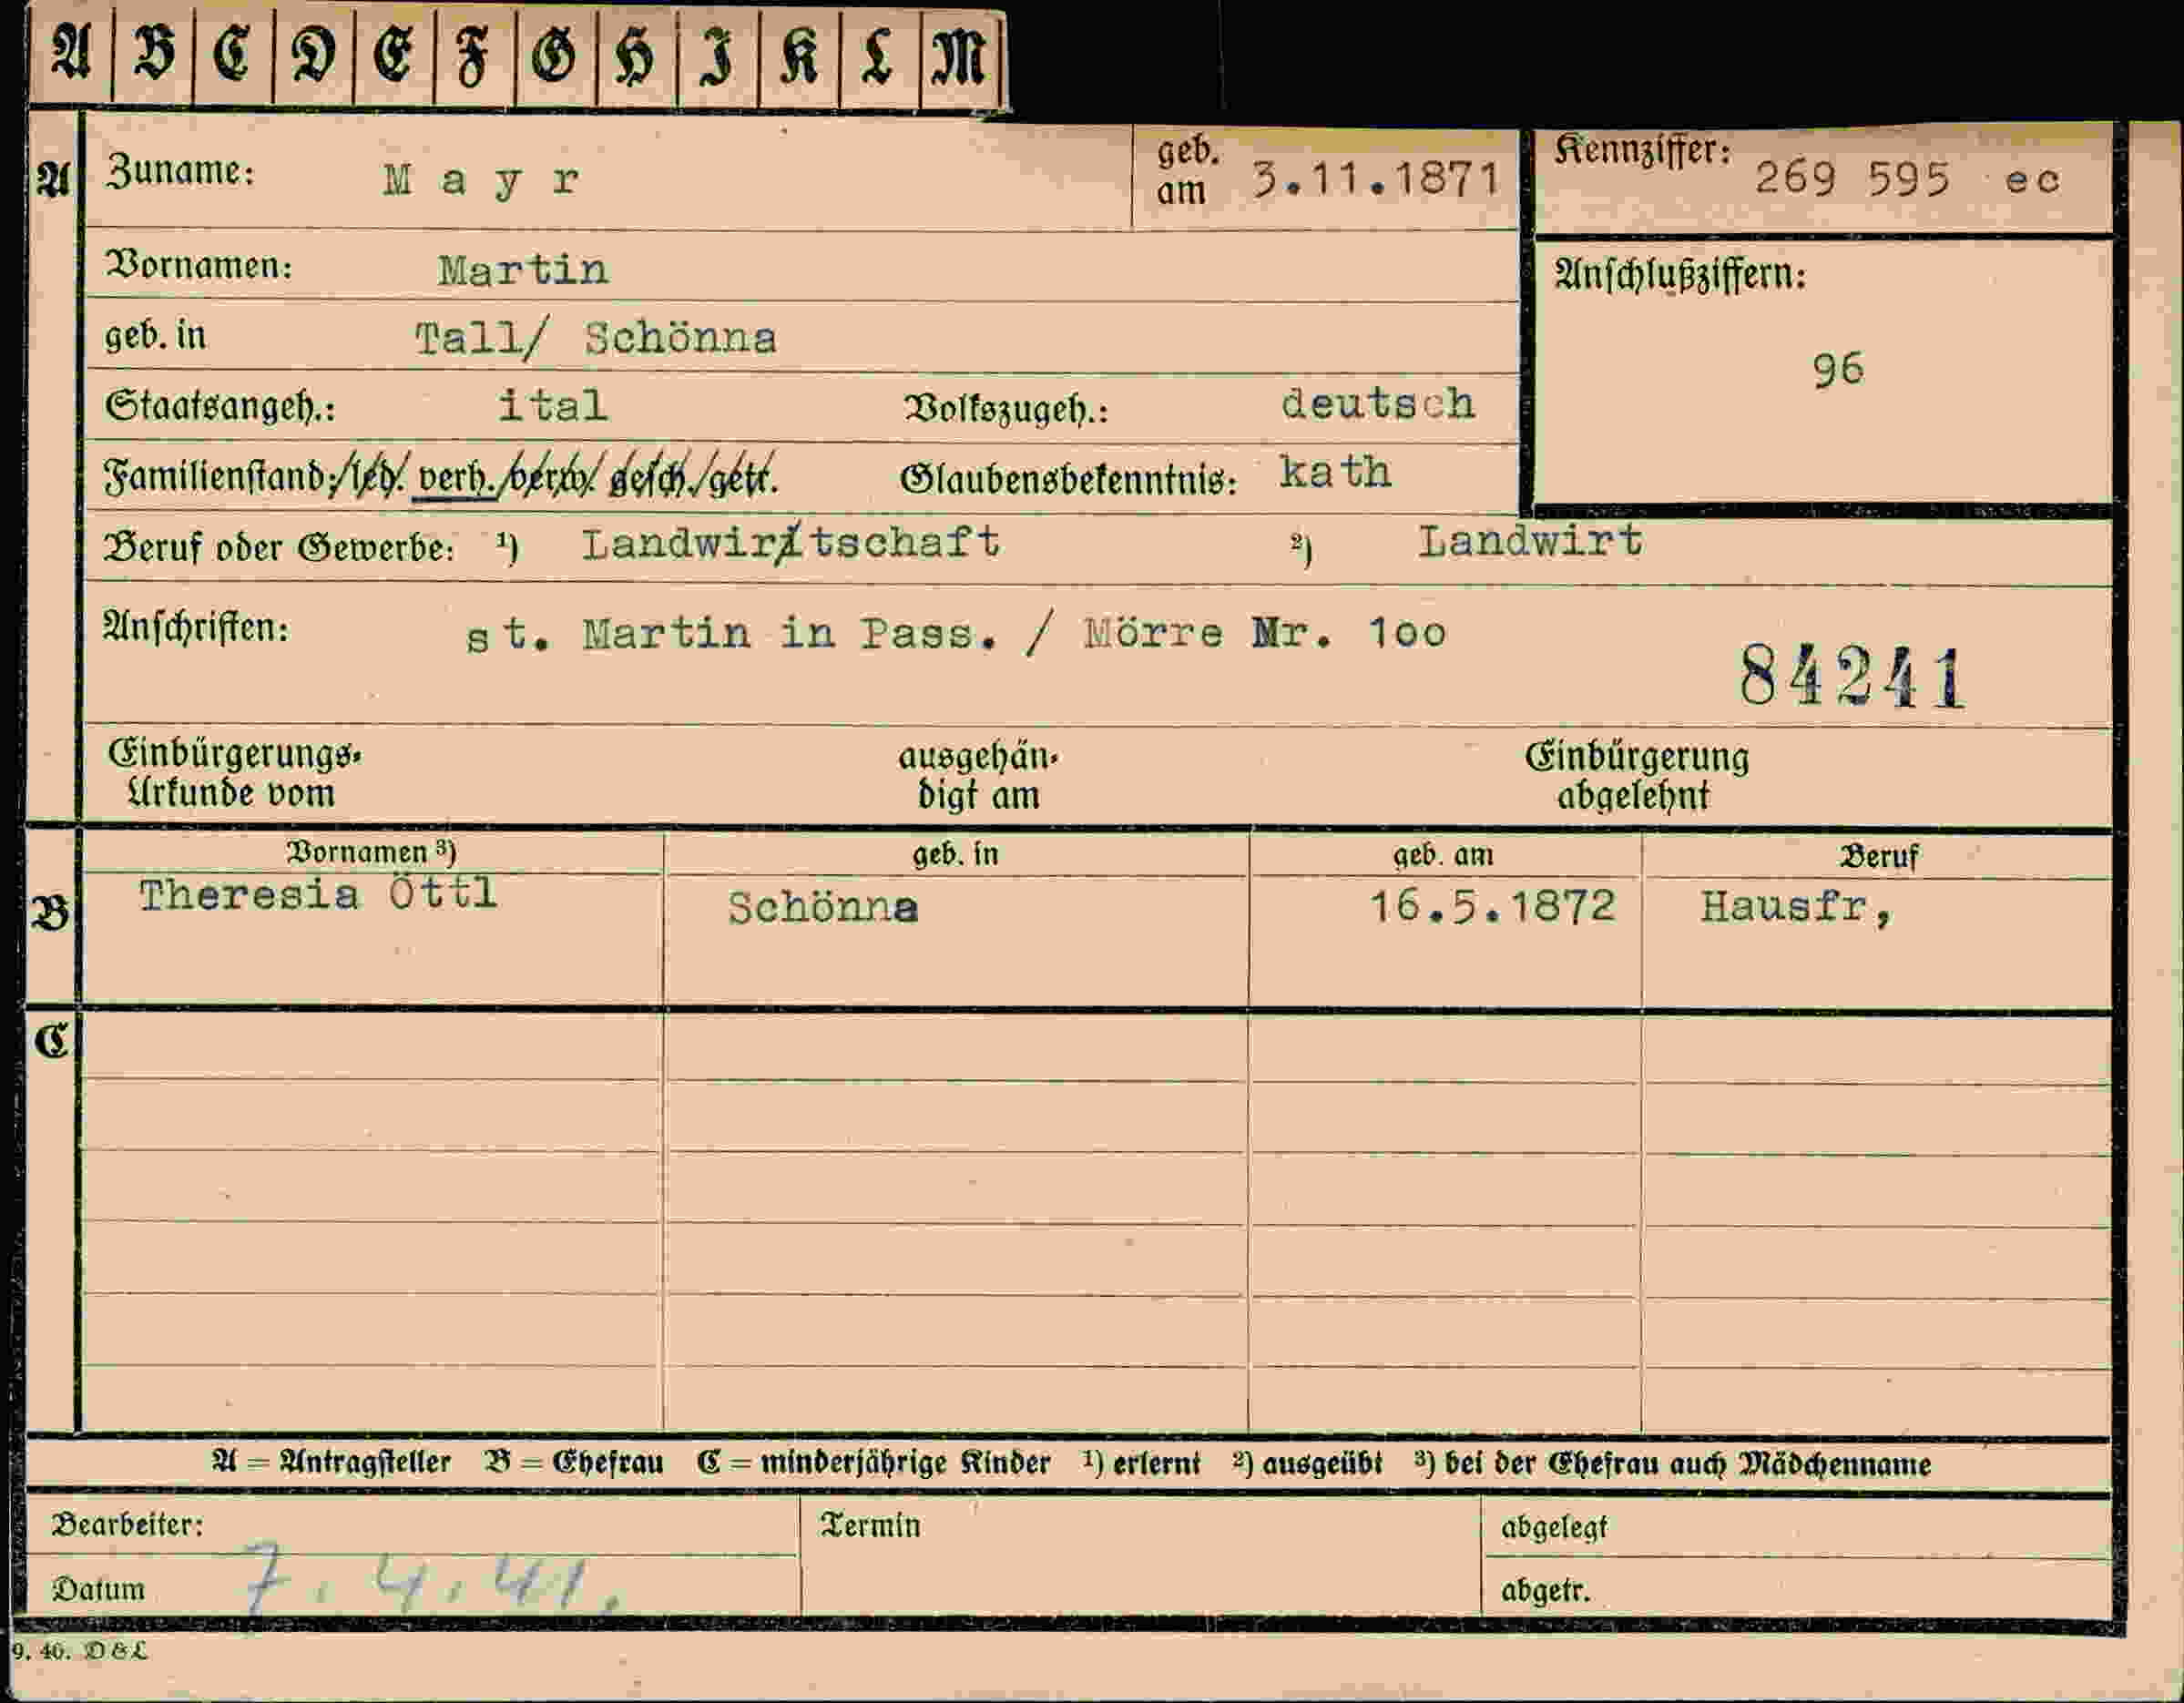 A B C D E F G H I K L M
A Zuname: Mayr geb. am 3.11.1871 Kennziffer: 269 595 ec
Vornamen: Martin Anschlußziffern:
geb. in Tall/ Schönna 96
Staatsangeh.: ital Volkszugeh.: deutsch
Familienstand: led. verh. verw. gesch. getr. Glaubensbekenntnis: kath
Beruf oder Gewerbe: ¹) Landwirtschaft ²) Landwirt
Anschriften: st. Martin in Pass. / Mörre Nr. 1oo
84241
Einbürgerungs- ausgehän- Einbürgerung
Urkunde vom digt am abgelehnt
Vornamen ³) geb. in geb. am Beruf
B Theresia Öttl Schönna 16.5.1872 Hausfr,
C
A = Antragsteller B = Ehefrau C = minderjährige Kinder ¹) erlernt ²) ausgeübt ³) bei der Ehefrau auch Mädchenname
Bearbeiter: Termin abgelegt
Datum 7.4.41. abgetr.
9. 40. D & L